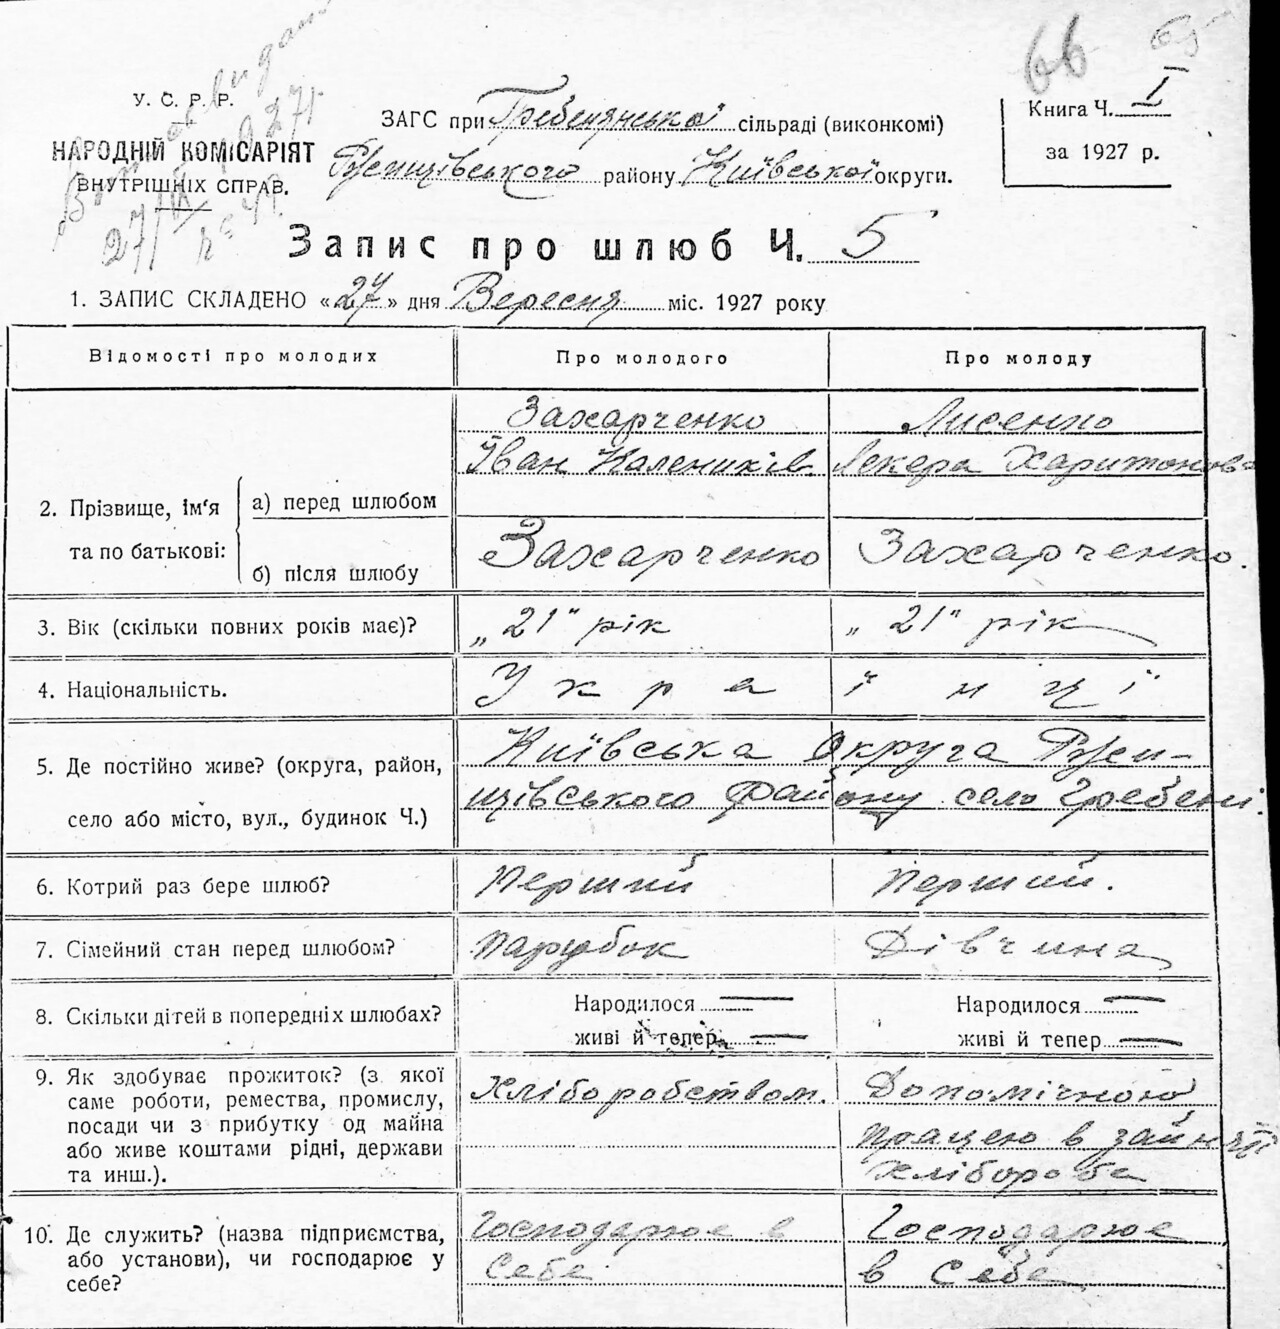 66 65
У. С. Р. Р.
НАРОДНІЙ КОМІСАРІЯТ
ВНУТРІШНІХ СПРАВ.
ЗАГС при Гребенянської сільраді (виконкомі)
Ржищівського району Київської округи.
Книга Ч. I
за 1927 р.
Запис про шлюб Ч. 5
1. ЗАПИС СКЛАДЕНО «27» дня Вересня міс. 1927 року
Відомості про молодих Про молодого Про молоду
2. Прізвище, ім'я та по батькові:
а) перед шлюбом
Захарченко Іван Калеників
Лисенко Лекера Харитонова
б) після шлюбу
Захарченко Захарченко.
3. Вік (скільки повних років має)? „21" рік „21" рік
4. Національність. Українці
5. Де постійно живе? (округа, район,
село або місто, вул., будинок Ч.)
Київська Округа Ржи-
щівського району село Гребені.
6. Котрий раз бере шлюб? Перший Перший.
7. Сімейний стан перед шлюбом? Парубок Дівчина
8. Скільки дітей в попередніх шлюбах?
Народилося — Народилося —
живі й тепер — живі й тепер —
9. Як здобуває прожиток? (з якої
саме роботи, ремества, промислу,
посади чи з прибутку од майна
або живе коштами рідні, держави
та инш.).
Хліборобством.
Допомічною
працею в занятті
хлібороба
10. Де служить? (назва підприємства,
або установи), чи господарює у
себе?
Господарює в
себе
Господарює
в себе